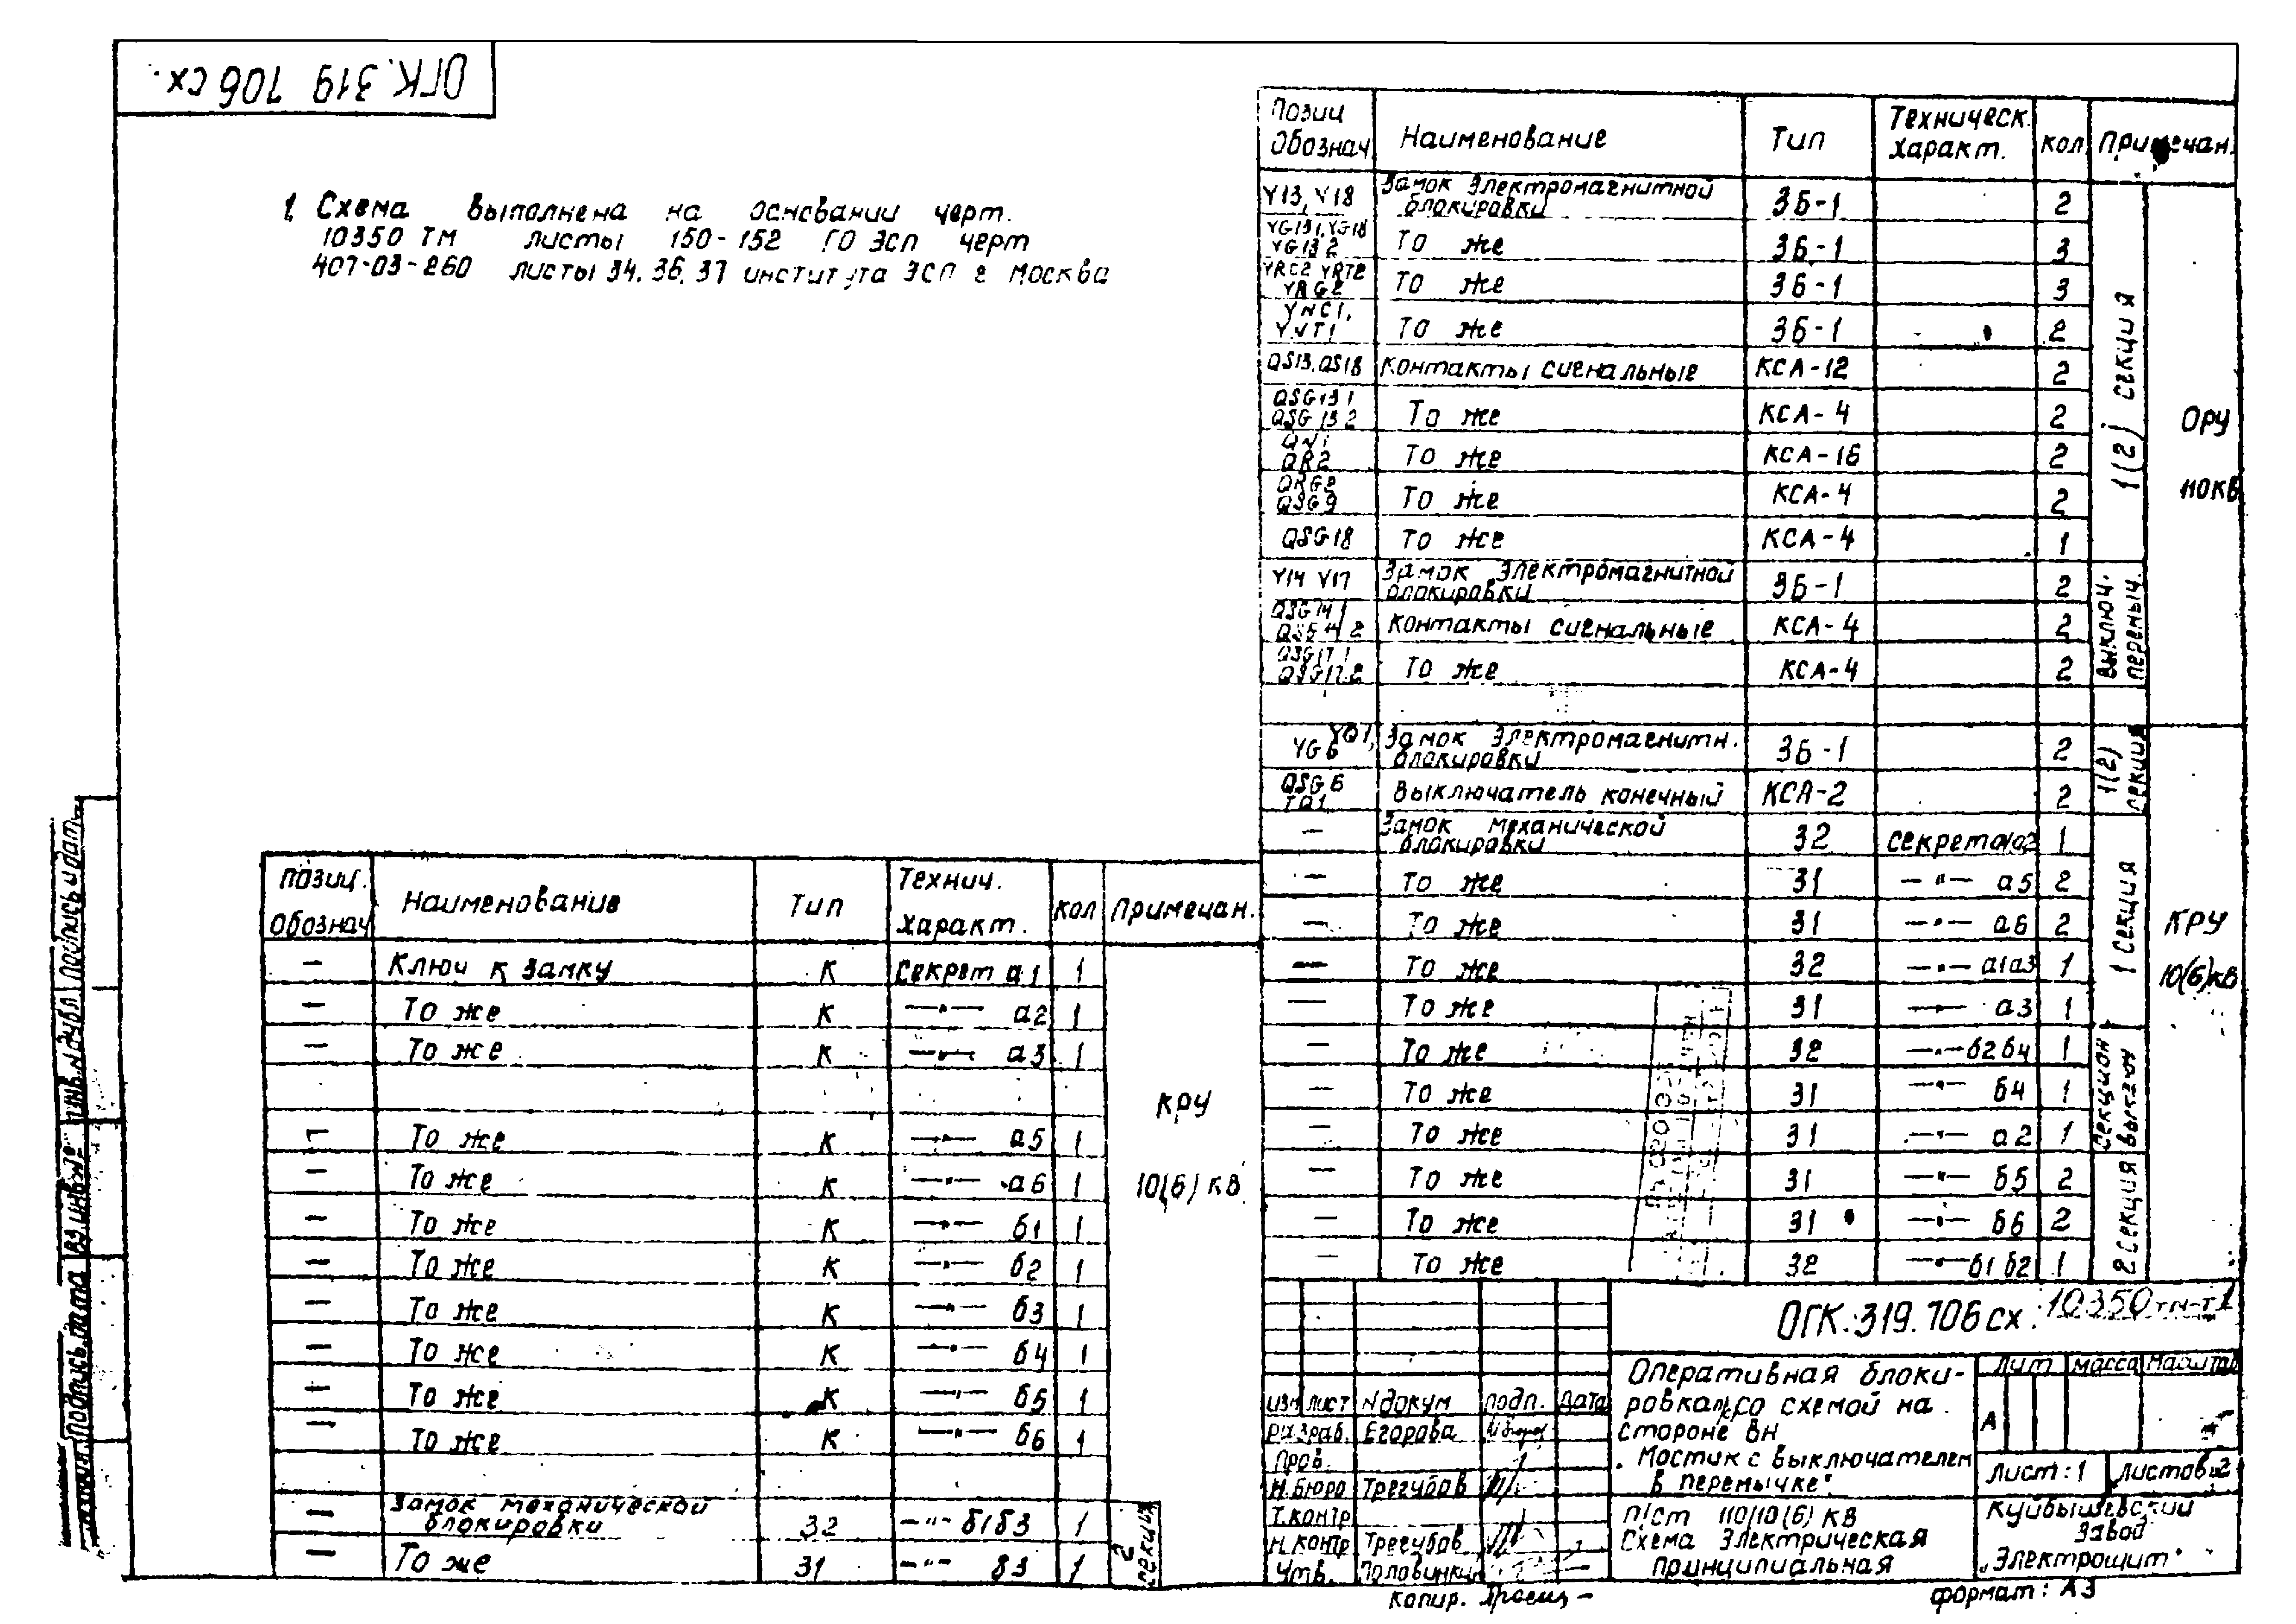 ОГК.319 706 сх.
1 Схема выполнена на основании черт.
10350 ТМ листы 150-152 ГО ЭСП черт
407-03-260 листы 34, 36, 37 института ЭСП г Москва
Позиц Обознач Наименование Тип Техническ. характ. Кол Примечан.
Y13, Y18 Замок электромагнитной блокировки ЗБ-1 2
YG13 1, YG18 YG13 2 То же ЗБ-1 3
YRC2 YRT2 YRG2 То же ЗБ-1 3
YNC1, YNT1 То же ЗБ-1 2
QS13, QS18 Контакты сигнальные КСА-12 2
QSG13 1 QSG 13 2 То же КСА-4 2
QN1 QR2 То же КСА-16 2
QRG2 QSG9 То же КСА-4 2
QSG18 То же КСА-4 1
1(2) секция
Y14 Y17 Замок электромагнитной блокировки ЗБ-1 2
QSG14 1 Контакты сигнальные КСА-4 2
QSG17 1 QSG17.2 То же КСА-4 2
Выключ. перемыч.
ОРУ
110кВ
YQ1, YG6 Замок электромагнитн. блокировки ЗБ-1 2
QSG6 TQ1 Выключатель конечный КСА-2 2
1(2) секция
— Замок механической блокировки 32 Секрет а1а2 1
— То же 31 —"— а5 2
— То же 31 —"— а6 2
— То же 32 —"— а1а3 1
— То же 31 —"— а3 1
1 секция
— То же 32 —"— б2б4 1
— То же 31 —"— б4 1
— То же 31 —"— а2 1
Секцион выкл
— То же 31 —"— б5 2
— То же 31 —"— б6 2
— То же 32 —"— б1 б2 1
2 секция
КРУ
10(6)кВ
Позиц. Обознач Наименование Тип Технич. характ. Кол Примечан.
— Ключ к замку К Секрет а1 1
— То же К —"— а2 1
— То же К —"— а3 1
— То же К —"— а5 1
— То же К —"— а6 1
— То же К —"— б1 1
— То же К —"— б2 1
— То же К —"— б3 1
— То же К —"— б4 1
— То же К —"— б5 1
— То же К —"— б6 1
КРУ
10(6) кВ
— Замок механической блокировки 32 —"— б1б3 1
— То же 31 —"— б3 1
2 секция
Подпись, дата
Вз. инв. №
Инв. № дубл
Подпись и дат
ОГК.319.706 сх. 10350тм-т1
Оперативная блоки-
ровка со схемой на
стороне ВН
„Мостик с выключателем
в перемычке"
п/ст 110/10(6) кВ
Схема электрическая
принципиальная
Лит Масса Масштаб
А
Лист: 1 Листов: 2
Куйбышевский
завод
„Электрощит"
Изм Лист N докум Подп. Дата
Разраб. Егорова
Пров.
Н.бюро Трегубов
Т.контр
Н.контр Трегубов
Утв. Половинкин
Копир.
Формат: А3